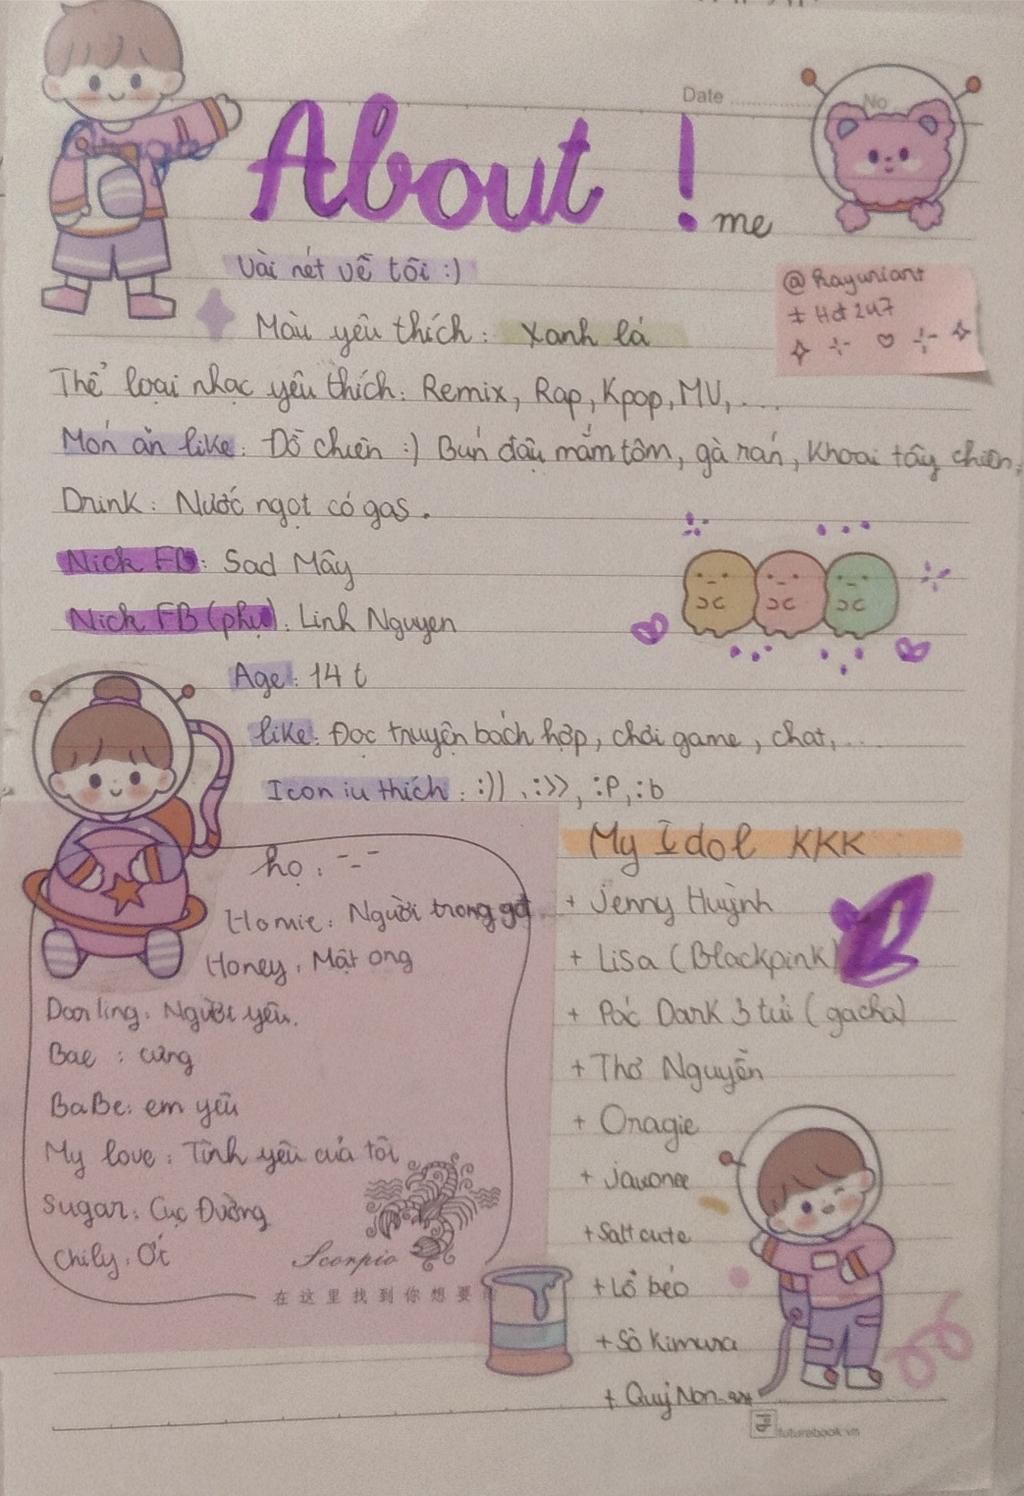 Date
No
About ! me
Vài nét về tôi :)
@Rayuniant
Màu yêu thích : Xanh lá
Thể loại nhạc yêu thích: Remix, Rap, Kpop, MV, ....
Món ăn like: Đồ chiên :) Bún đậu mắm tôm, gà rán, Khoai tây chiên,
Drink: Nước ngọt có gas.
Nick FB: Sad Mây
Nick FB (phụ): Linh Nguyen
Age: 14 t
like: Đọc truyện bách hợp, chơi game, chat, ...
Icon iu thích : :)) , :>>, :P, :b
họ : -_-
Homie: Người trong
Honey: Mật ong
Darling: Người yêu.
Bae : cưng
BaBe: em yêu
My love : Tình yêu của tôi
Sugar: Cục Đường
Chily: Ớt
Scorpio
在这里找到你想要
My Idol KKK
+ Jenny Huỳnh
+ Lisa (Blackpink)
+ Pác Dark 3 tủi (gacha)
+ Thơ Nguyễn
+ Oragie
+ Salt cute
+ Lổ béo
+ Sò Kimura
+ Quý Non
futurebook.vn